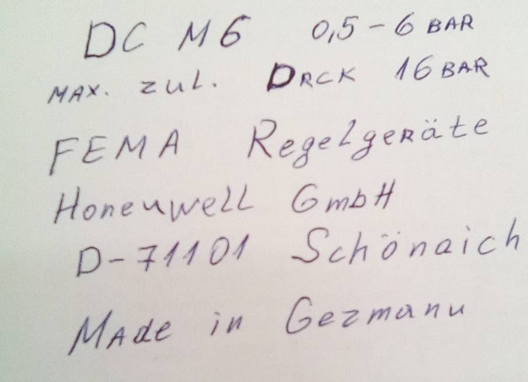 DC M6 0,5-6 BAR
MAX. ZUL. DRCK 16 BAR
FEMA Regelgeräte
Honeuwell GmbH
D-71101 Schönaich
MAde in Gezmanu